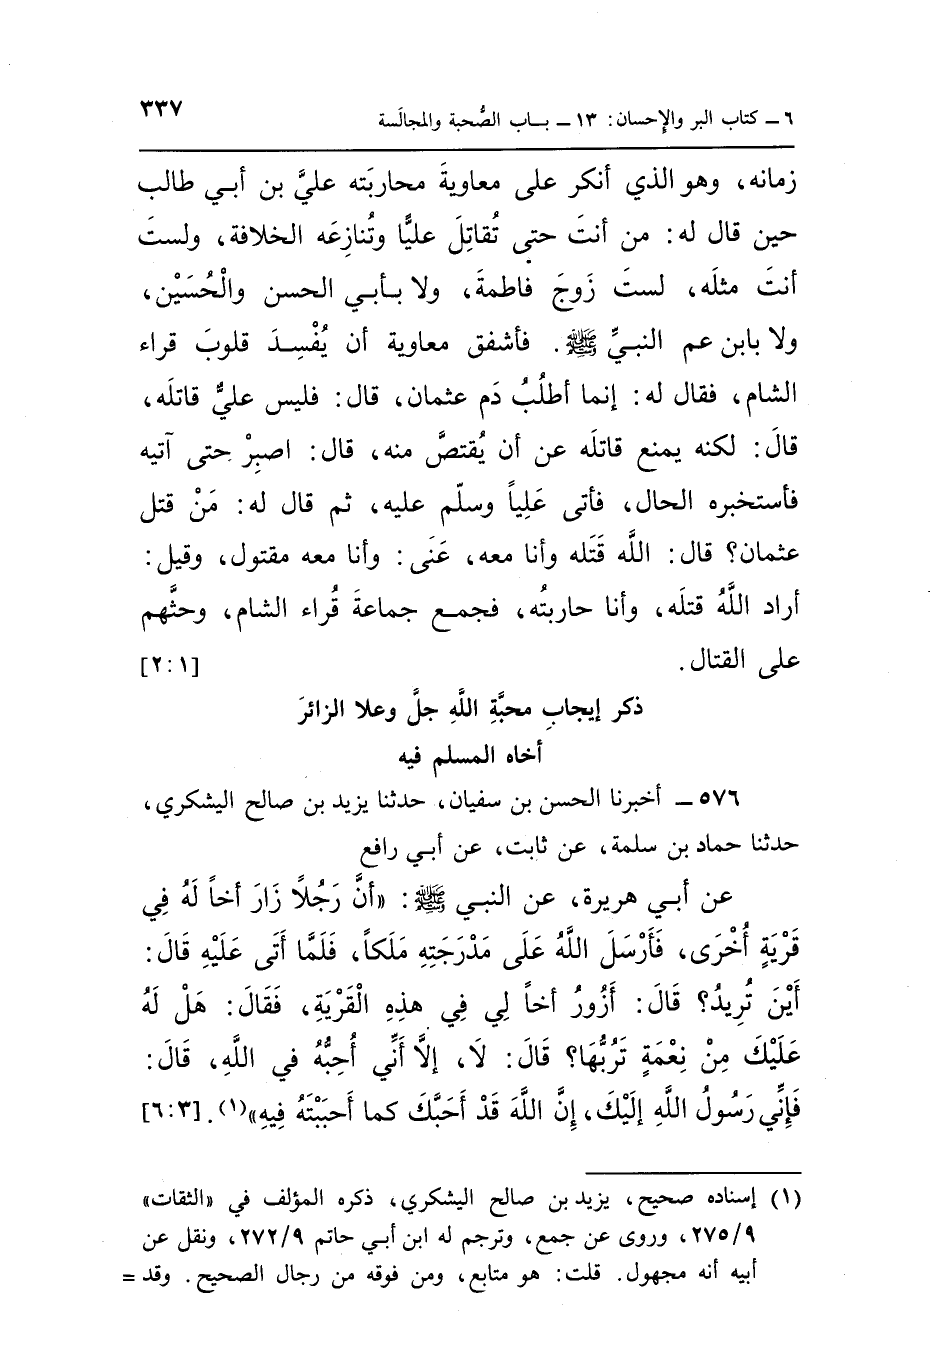 ٦ ـ كتاب البر والإحسان: ١٣ ـ بـاب الصُّحبة والمجالَسة ٣٣٧
زمانه، وهو الذي أنكر على معاويةَ محاربَته عليَّ بن أبي طالب
حين قال له: من أنتَ حتى تُقاتِلَ عليًّا وتُنازِعَه الخلافة، ولستَ
أنتَ مثلَه، لستَ زَوجَ فاطمةَ، ولا بـأبي الحسن والْحُسَيْن،
ولا بابن عم النبيِّ ﷺ. فأشفق معاوية أن يُفْسِدَ قلوبَ قراء
الشام، فقال له: إنما أطلُبُ دَم عثمان، قال: فليس عليٌّ قاتلَه،
قالَ: لكنه يمنع قاتلَه عن أن يُقتصَّ منه، قال: اصبِرْ حتى آتيه
فأستخبره الحال، فأتى عَلِياً وسلّم عليه، ثم قال له: مَنْ قتل
عثمان؟ قال: اللَّه قَتَله وأنا معه، عَنَى: وأنا معه مقتول، وقيل:
أراد اللَّهُ قتلَه، وأنا حاربتُه، فجمع جماعةَ قُراء الشام، وحثَّهم
على القتال. [٢:١]
ذكر إيجابِ محبَّةِ اللَّهِ جلَّ وعلا الزائرَ
أخاه المسلم فيه
٥٧٦ ـ أخبرنا الحسن بن سفيان، حدثنا يزيد بن صالح اليشكري،
حدثنا حماد بن سلمة، عن ثابت، عن أبي رافع
عن أبي هريرة، عن النبي ﷺ: «أنَّ رَجُلاً زَارَ أخاً لَهُ فِي
قَرْيَةٍ أُخْرَى، فَأَرْسَلَ اللَّهُ عَلَى مَدْرَجَتِهِ مَلَكاً، فَلَمَّا أَتَى عَلَيْهِ قَالَ:
أَيْنَ تُرِيدُ؟ قَالَ: أَزُورُ أخاً لِي فِي هذِهِ الْقَرْيَةِ، فَقَالَ: هَلْ لَهُ
عَلَيْكَ مِنْ نِعْمَةٍ تَرُبُّهَا؟ قَالَ: لَا، إلَّا أَنِّي أُحِبُّهُ في اللَّهِ، قَالَ:
فَإنِّي رَسُولُ اللَّهِ إلَيْكَ، إِنَّ اللَّهَ قَدْ أَحَبَّكَ كما أَحبَبْتَهُ فِيهِ»(١). [٦:٣]
(١) إسناده صحيح، يزيد بن صالح اليشكري، ذكره المؤلف في «الثقات»
٢٧٥/٩، وروى عن جمع، وترجم له ابن أبي حاتم ٢٧٢/٩، ونقل عن
أبيه أنه مجهول. قلت: هو متابع، ومن فوقه من رجال الصحيح. وقد =